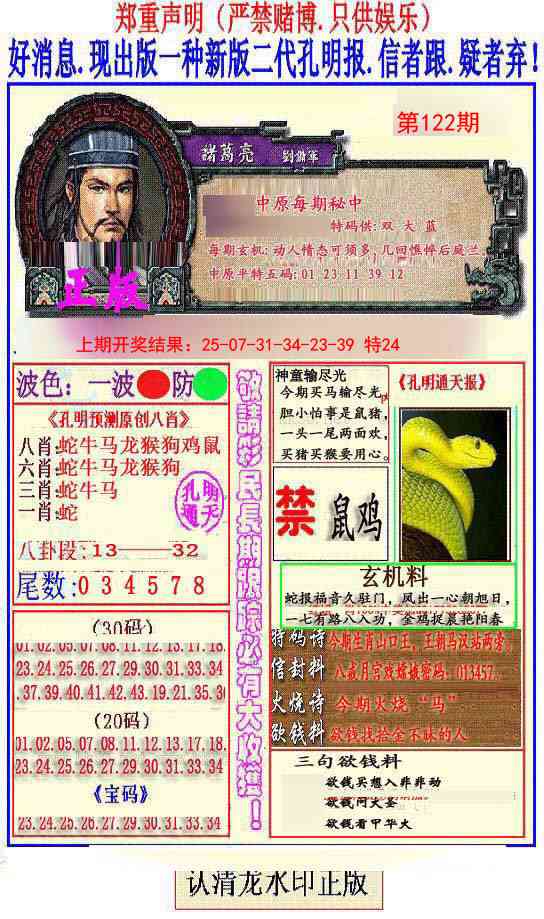 郑重声明（严禁赌博.只供娱乐）
好消息.现出版一种新版二代孔明报.信者跟.疑者弃!
第122期
諸葛亮
中原每期秘中
特码供:双 大 蓝
每期玄机:动人情态可须多,几回憔悴后庭兰.
中原平特五码:01 23 11 39 12
正版
上期开奖结果: 25-07-31-34-23-39 特24
波色: 一波 防
《孔明预测原创八肖》
八肖:蛇牛马龙猴狗鸡鼠
六肖:蛇牛马龙猴狗
三肖:蛇牛马
一肖:蛇
孔明通天
八卦段:13——32
尾数:0 3 4 5 7 8
(30码)
01.02.05.07.08.11.12.13.17.18.
23.24.25.26.27.29.30.31.33.34
.37.39.40.41.42.43.19.21.35.36
(20码)
01.02.05.07.08.11.12.13.17.18.
23.24.25.26.27.29.30.31.33.34
《宝码》
23.24.25.26.27.29.30.31.33.34
敬請彩民長期跟踪必有大收獲!
神童输尽光
今期买马输尽光,
胆小怕事是鼠猪,
一头一尾两面欢,
买猪买猴要用心。
《孔明通天报》
禁 鼠鸡
玄机料
蛇报福音久驻门, 凤出一心朝旭日,
一七有路八入功, 金鸡捉襄艳阳春
特码诗 今期生肖山口王, 王朝马汉站两旁。
信封料 密码: 013457.
火烧诗 今期火烧“马”
欲钱料 欲钱找拾金不昧的人
三句欲钱料
欲钱买想入非非动
欲钱问大圣
欲钱看甲华火
认清龙水印正版